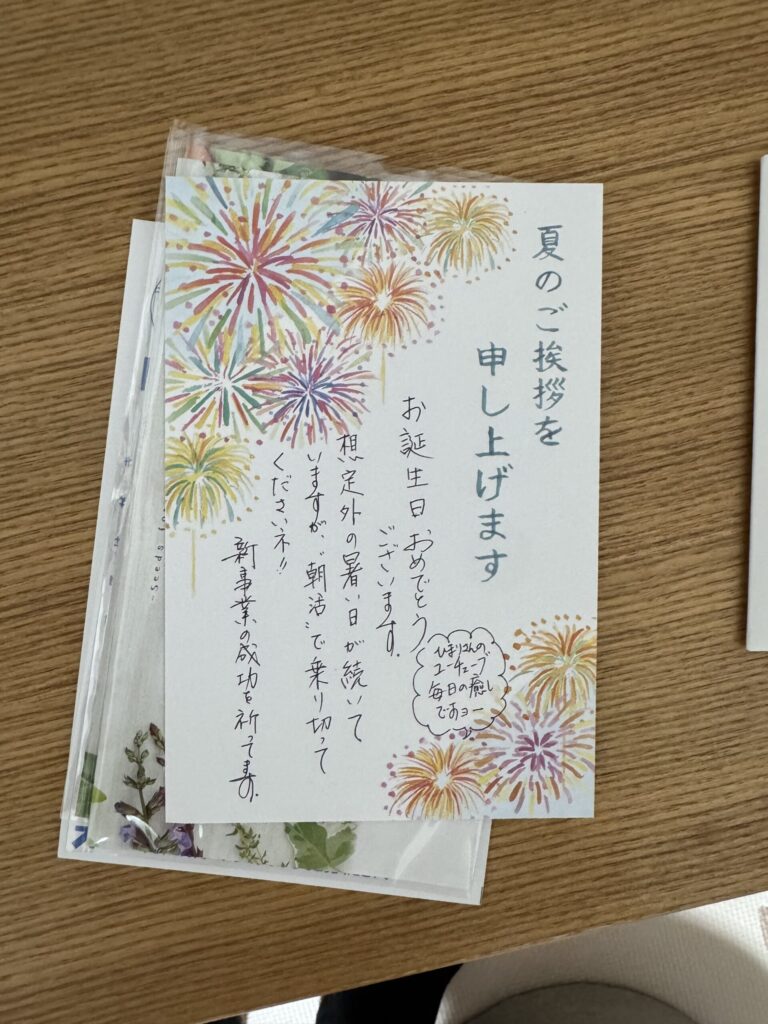 夏のご挨拶を
申し上げます
お誕生日おめでとう
ございます。
想定外の暑い日が続いて
いますが、"朝活"で乗り切って
くださいネ!!
新事業の成功を祈ってます。
ひまりさんの
ユーチューブ
毎日の癒し
ですヨー
seeds